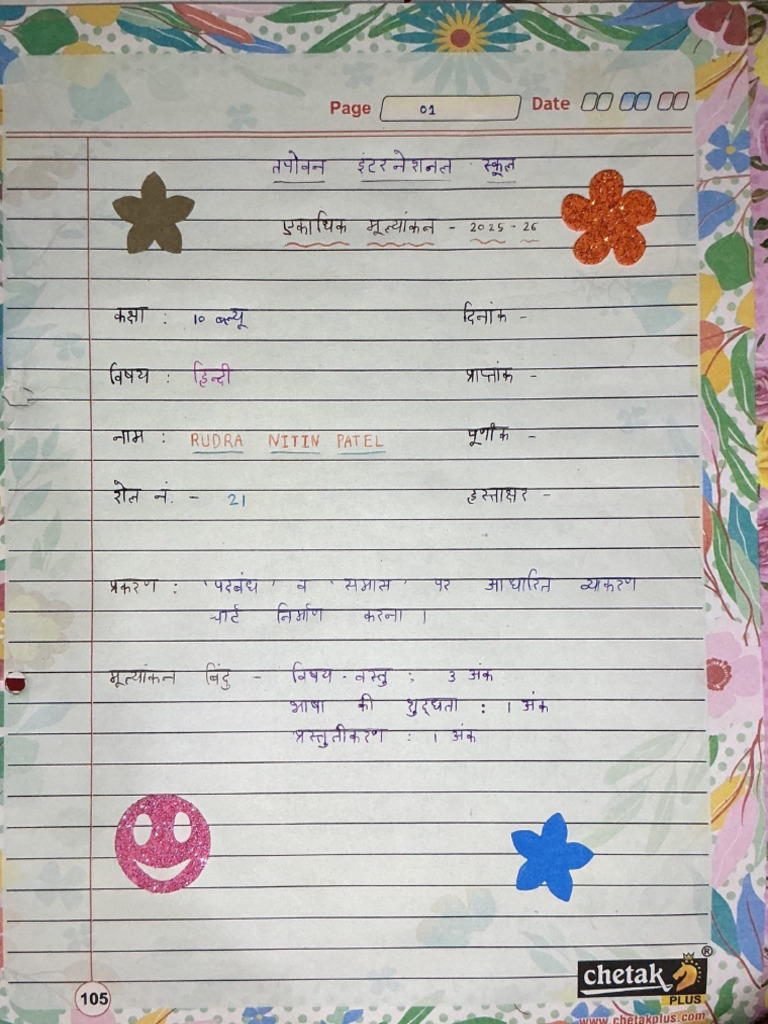 Page 01 Date
तपोवन इंटरनेशनल स्कूल
एकाधिक मूल्यांकन - 2025 - 26
कक्षा : 10 ब्ल्यू दिनांक -
विषय : हिन्दी प्राप्तांक -
नाम : RUDRA NITIN PATEL पूर्णांक -
रोल नं. - 21 हस्ताक्षर -
प्रकरण : 'पदबंध' व 'समास' पर आधारित व्याकरण
चार्ट निर्माण करना ।
मूल्यांकन बिंदु - विषय - वस्तु : 3 अंक
भाषा की शुद्धता : 1 अंक
प्रस्तुतीकरण : 1 अंक
chetak ®
PLUS
105
www.chetakplus.com